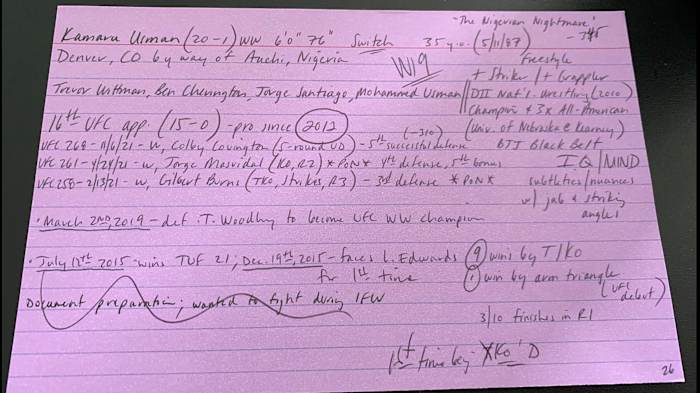 "The Nigerian Nightmare"
Kamaru Usman (20-1) WW 6'0" 76" Switch 35 y.o. (5/11/87)
Denver, CO by way of Auchi, Nigeria
W19
Freestyle
+ Striker / + Grappler
Trevor Wittman, Ben Cherington, Jorge Santiago, Mohammed Usman
DII Nat'l. Wrestling (2010)
Champion & 3x All-American
(Univ. of Nebraska @ Kearney)
BJJ Black Belt
16th UFC app. (15-0) - pro since 2012
(-310)
UFC 268 - 11/6/21 - W, Colby Covington (5-round UD) - 5th successful defense
UFC 261 - 4/24/21 - W, Jorge Masvidal (KO, R2) *PoN* 4th defense, 5th bonus
UFC 258 - 2/13/21 - W, Gilbert Burns (TKO, Strikes, R3) - 3rd defense *PoN*
I.Q / MIND
subtleties/nuances
w/ jab & striking
angles
• March 2nd, 2019 - def. T. Woodley to become UFC WW champion
• July 12th 2015 - wins TUF 21; Dec. 19th, 2015 - faces L. Edwards
for 1st time
9 wins by T/KO
1 win by arm triangle
(UFC debut)
3/10 finishes in R1
Document preparation; wanted to fight during IFW
1st time being KO'D
26